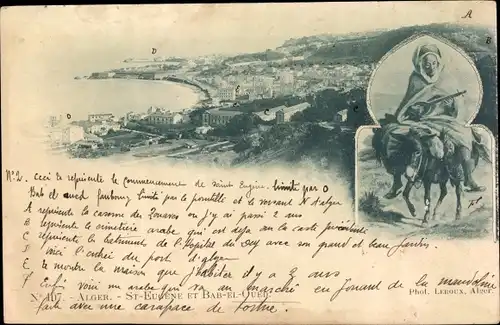 A
D
N°2. Ceci représente le commencement de Saint Eugène. limité par O
Bab el oued faubourg limité par la pontelle et le versant N d'Alger
A représente la caserne des Zouaves ou j'y ai passé 2 ans
B représente le cimetière arabe qui est déja sur la carte précédente
C représente le batiment de l'Hopital du Dey avec son grand et beau Jardin
D voici l'entrée du port d'alger
E te montre la maison que j'habitais il y a 2 ans
F Enfin voici un arabe qui va au marché en jouant de la mandoline
faite avec une carapace de tortue.
N° 107. - ALGER. - ST-EUGÈNE ET BAB-EL-OUED.
Phot. LEROUX, Alger.